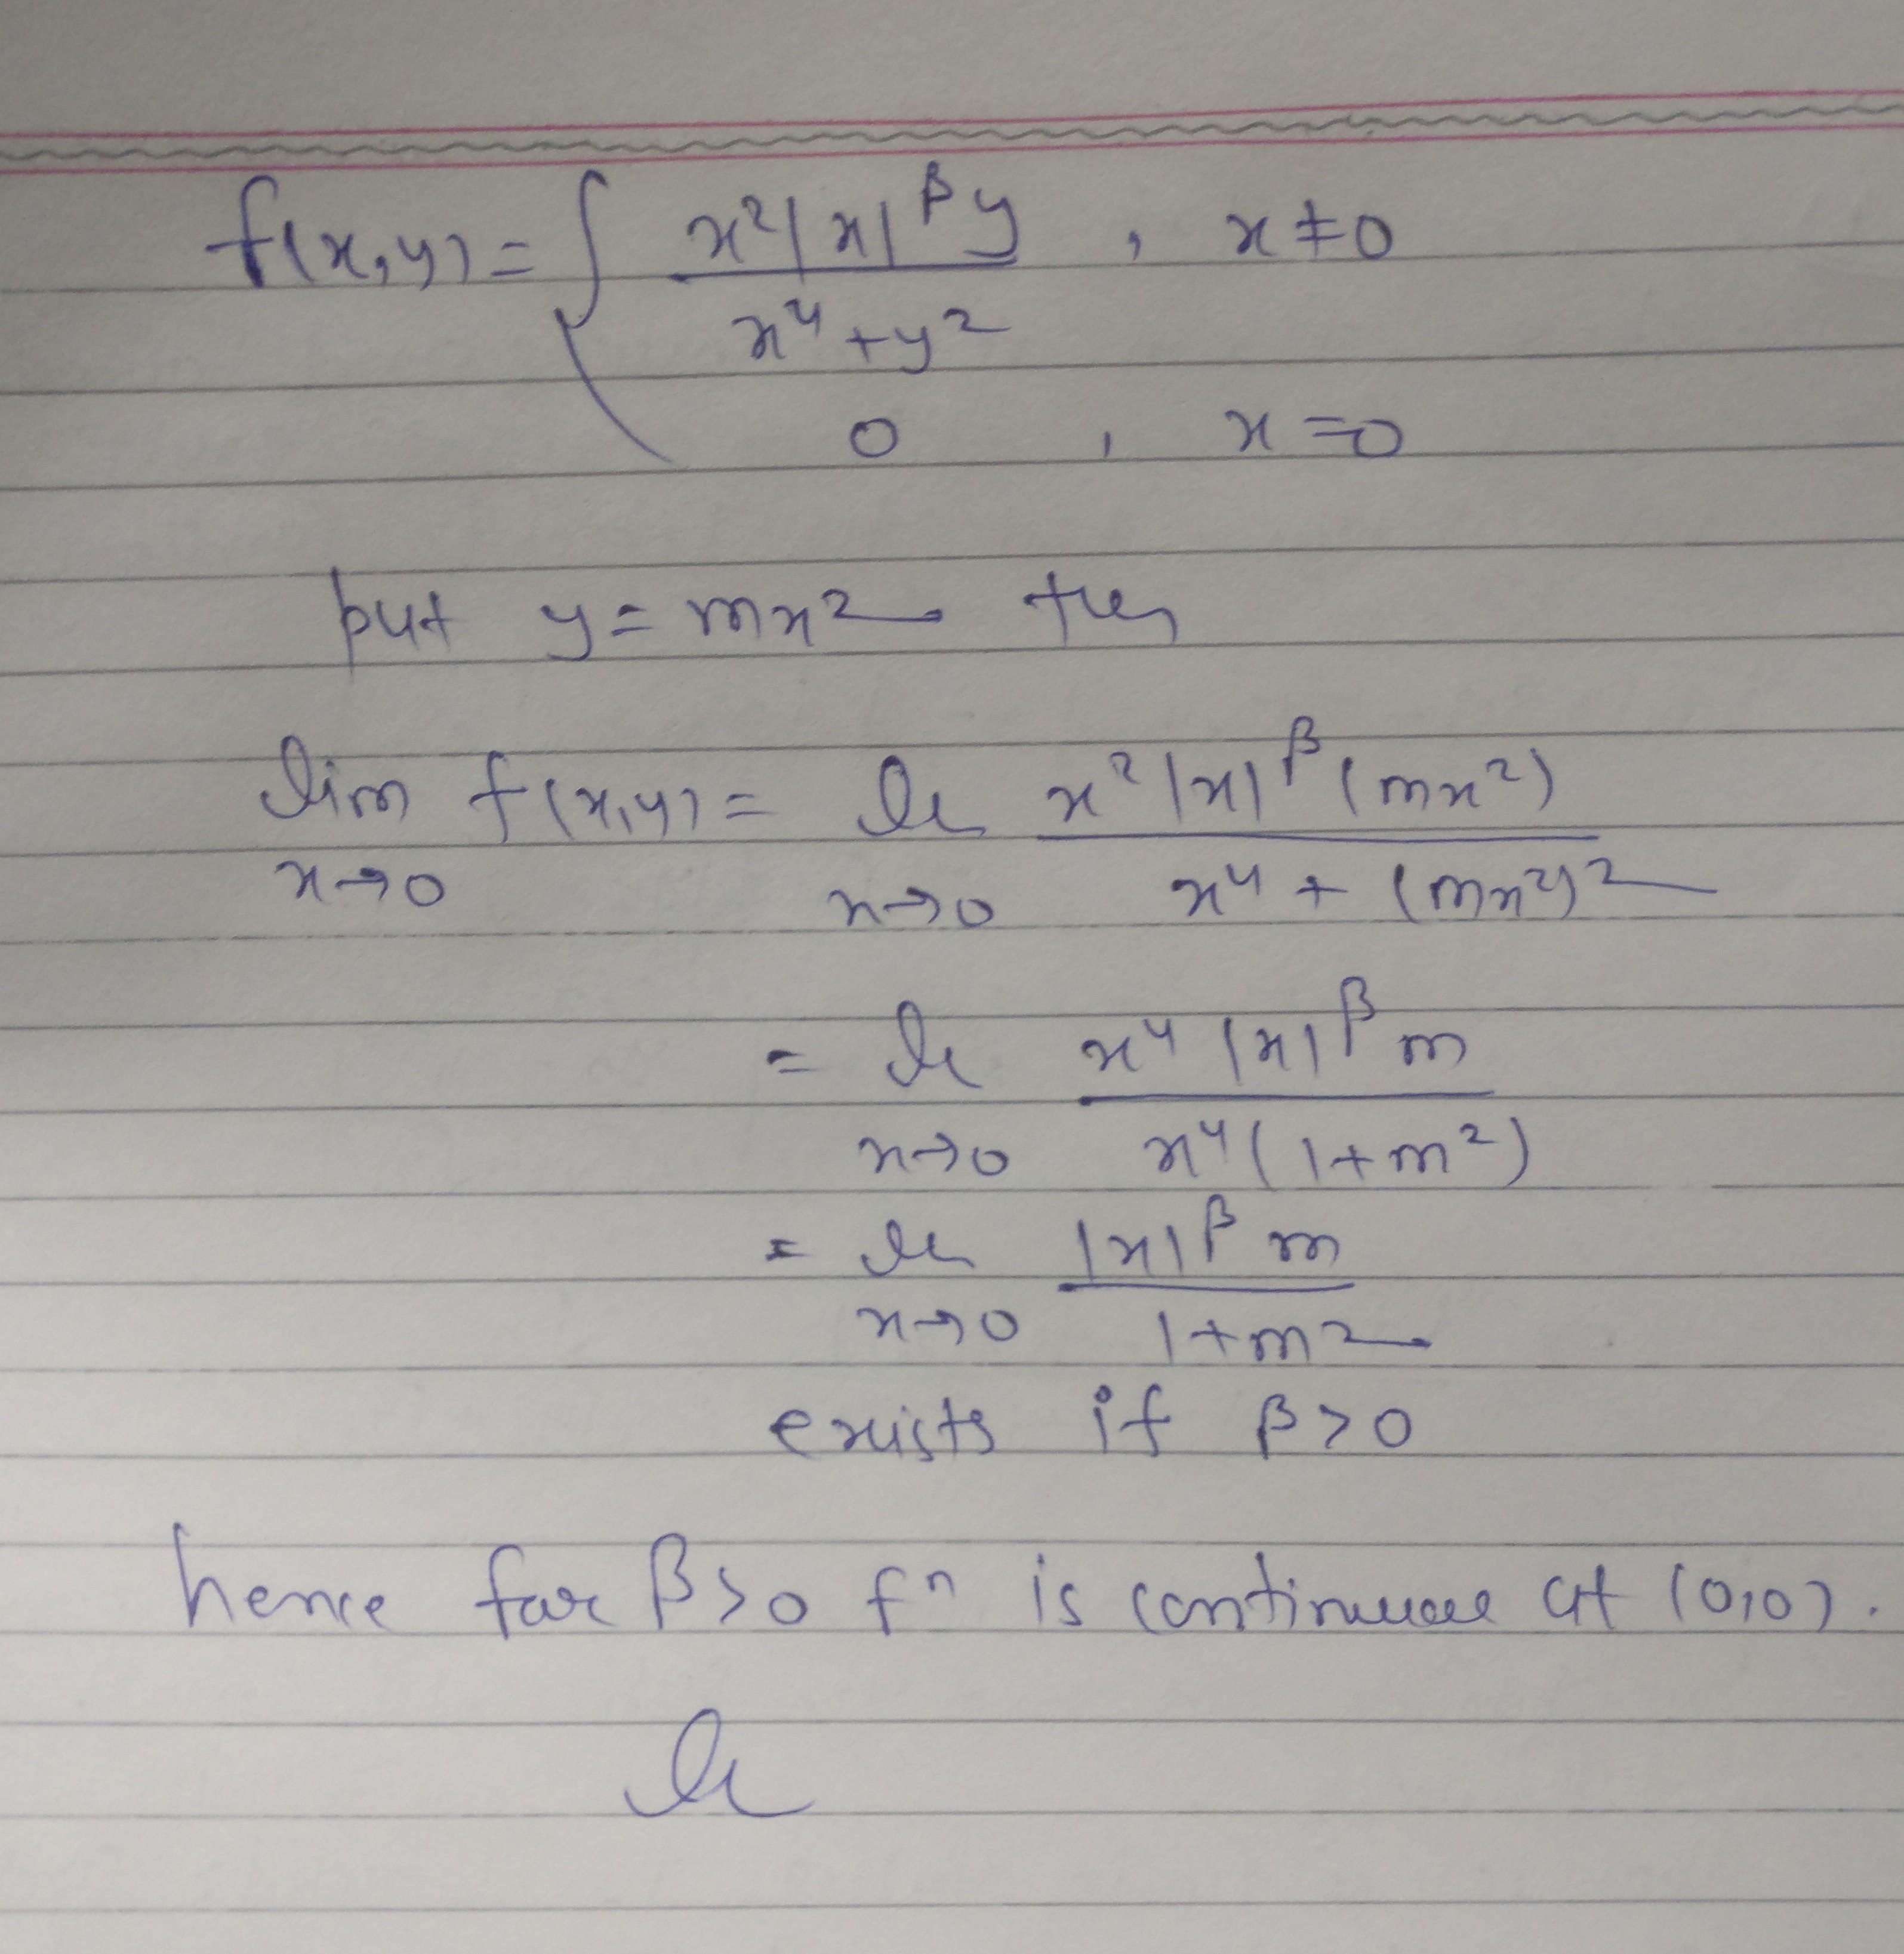 f(x,y) = { x²|x|^β y / x⁴+y² , x≠0
0 , x=0
put y = mx² then
lim x→0 f(x,y) = lim x→0 x²|x|^β (mx²) / x⁴ + (mx²)²
= lim x→0 x⁴ |x|^β m / x⁴(1+m²)
= lim x→0 |x|^β m / 1+m²
exists if β>0
hence for β>0 fⁿ is continuous at (0,0).